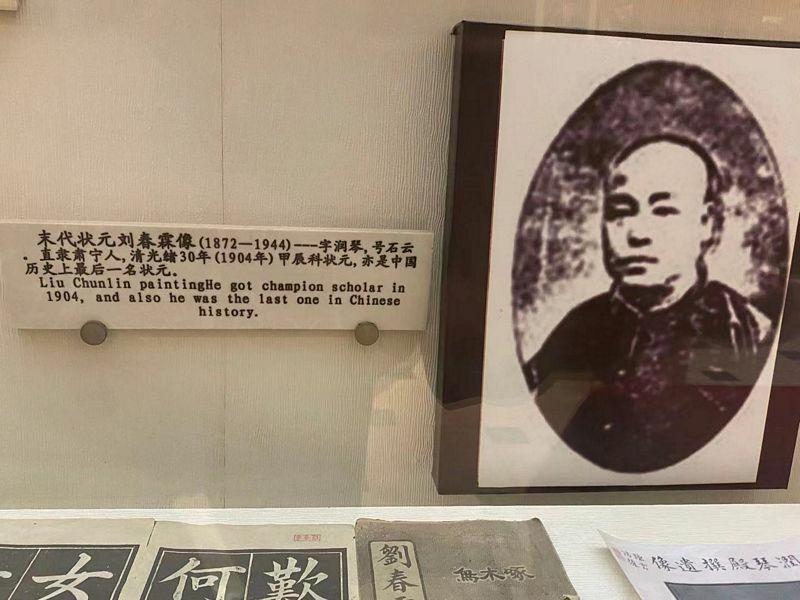 末代状元刘春霖像(1872—1944)---字润琴,号石云
。直隶肃宁人,清光绪30年(1904年)甲辰科状元,亦是中国
历史上最后一名状元。
Liu Chunlin paintingHe got champion scholar in
1904, and also he was the last one in Chinese
history.
女
何
歎
劉春
啄木鳥
潤琴殿撰遺像